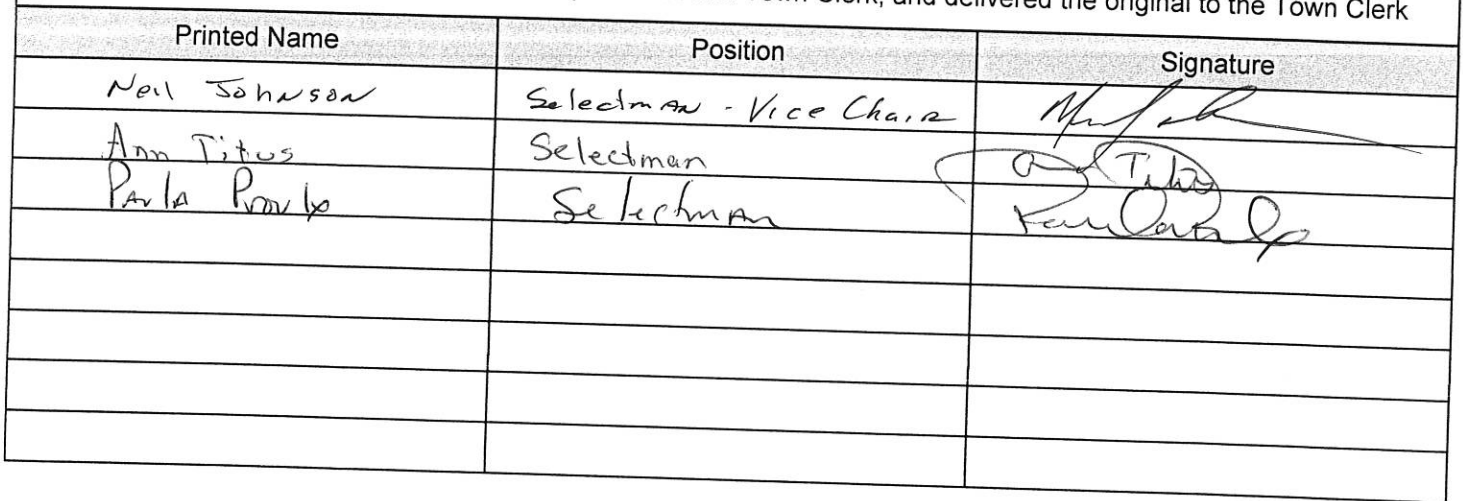 Town Clerk, and delivered the original to the Town Clerk
Printed Name Position Signature
Neil Johnson Selectman - Vice Chair
Ann Titus Selectman Titus
Paula Proulx Selectman Paula Proulx